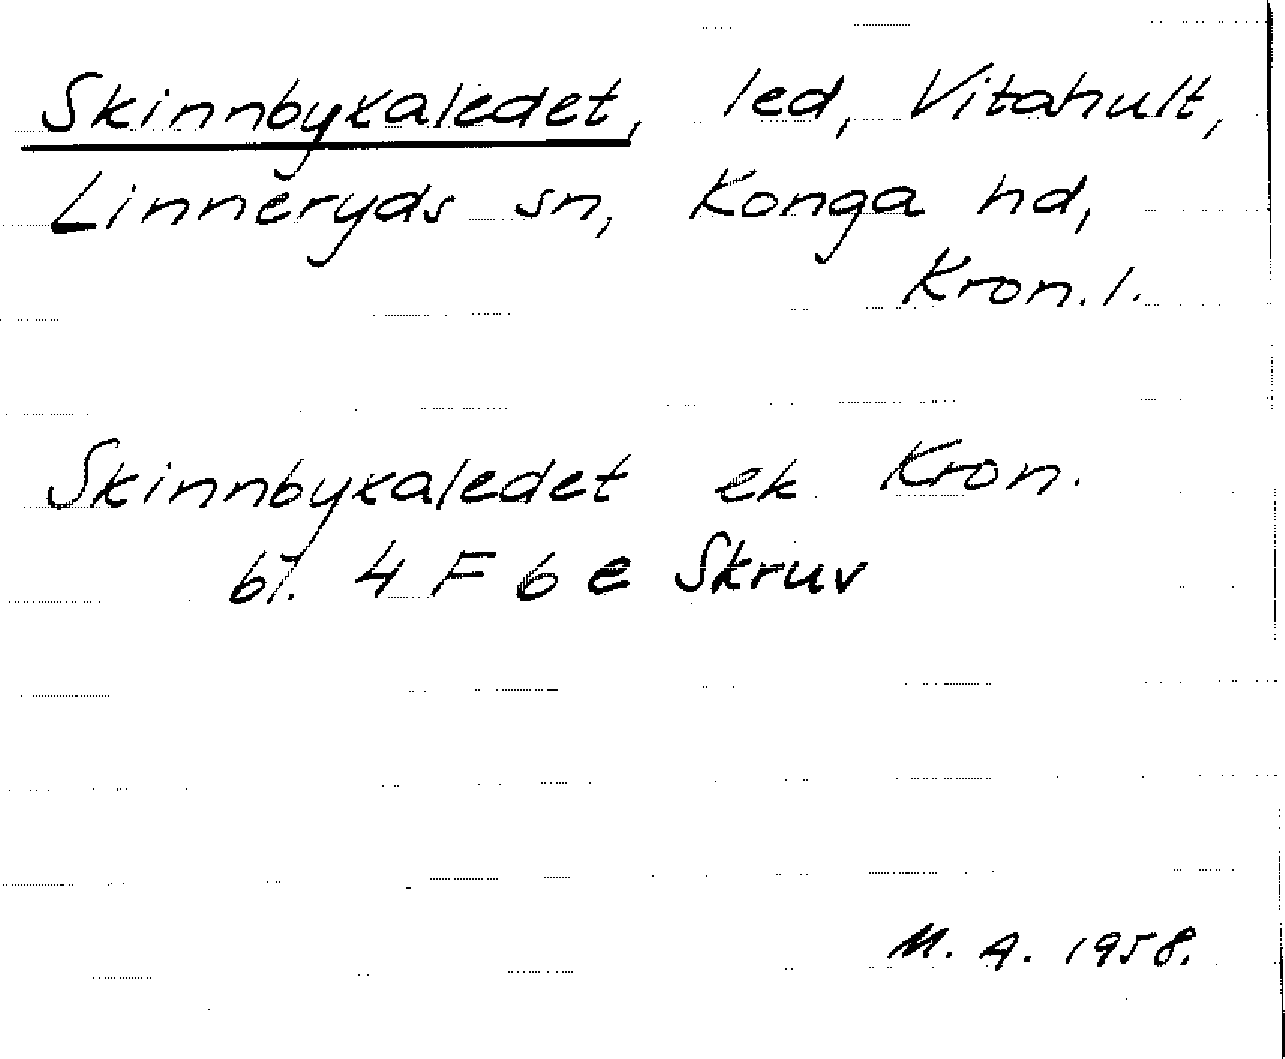 Skinnbyxaledet, led, Vitahult,
Linneryds sn, Konga hd,
Kron. l.
Skinnbyxaledet ek Kron.
bl. 4 F 6 e Skruv
M. A. 1958.